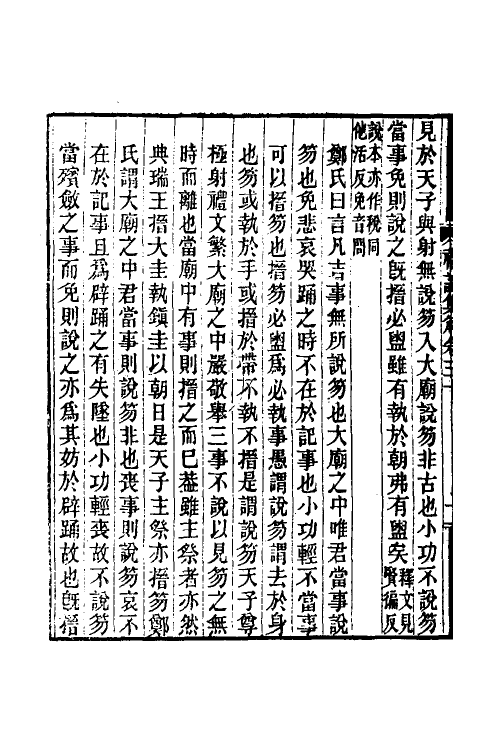 見於天子與射無說笏入大廟說笏非古也小功不說笏
當事免則說之旣搢必盥雖有執於朝弗有盥矣釋文見賢徧反
說本亦作稅同他活反免音問
鄭氏曰言凡吉事無所說笏也大廟之中唯君當事說
笏也免悲哀哭踊之時不在於記事也小功輕不當事
可以搢笏也搢笏必盥爲必執事愚謂說笏謂去於身
也笏或執於手或搢於帶不執不搢是謂說笏天子尊
極射禮文繁大廟之中嚴敬舉三事不說以見笏之無
時而離也當廟中有事則搢之而已葢雖主祭者亦然
典瑞王搢大圭執鎭圭以朝日是天子主祭亦搢笏鄭
氏謂大廟之中君當事則說笏非也喪事則說笏哀不
在於記事且爲辟踊之有失墜也小功輕喪故不說笏
當殯斂之事而免則說之亦爲其妨於辟踊故也旣搢